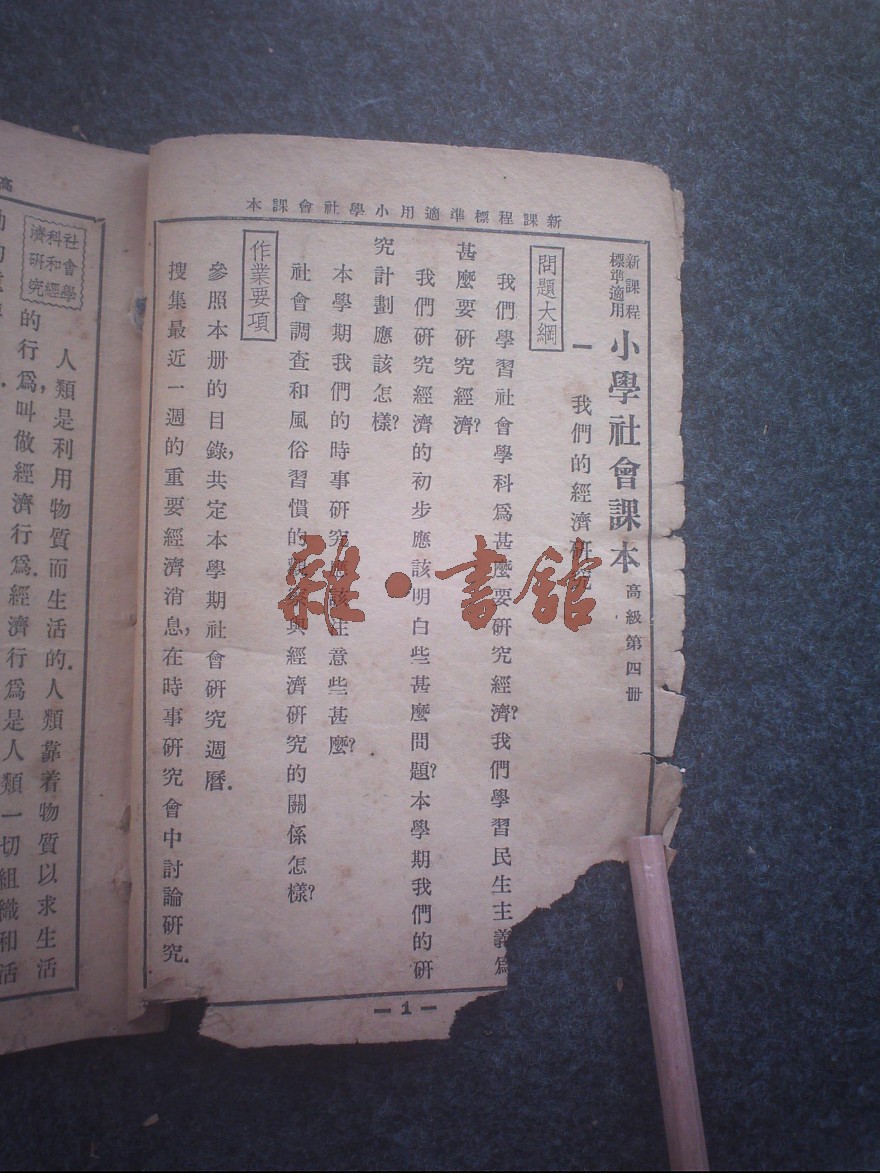 新課程標準適用小學社會課本
新課程標準適用
小學社會課本
高級第四冊
一 我們的經濟研究
問題大綱
我們學習社會學科爲甚麼要研究經濟?我們學習民生主義爲
甚麼要研究經濟?
我們研究經濟的初步應該明白些甚麼問題?本學期我們的研
究計劃應該怎樣?
本學期我們的時事研究應該注意些甚麼?
社會調查和風俗習慣的觀察與經濟研究的關係怎樣?
作業要項
參照本册的目錄,共定本學期社會研究週曆.
搜集最近一週的重要經濟消息,在時事研究會中討論研究.
— 1 —
雜·書館
高
社會學科和經濟研究
人類是利用物質而生活的.人類靠着物質以求生活
的行爲,叫做經濟行爲.經濟行爲是人類一切組織和活